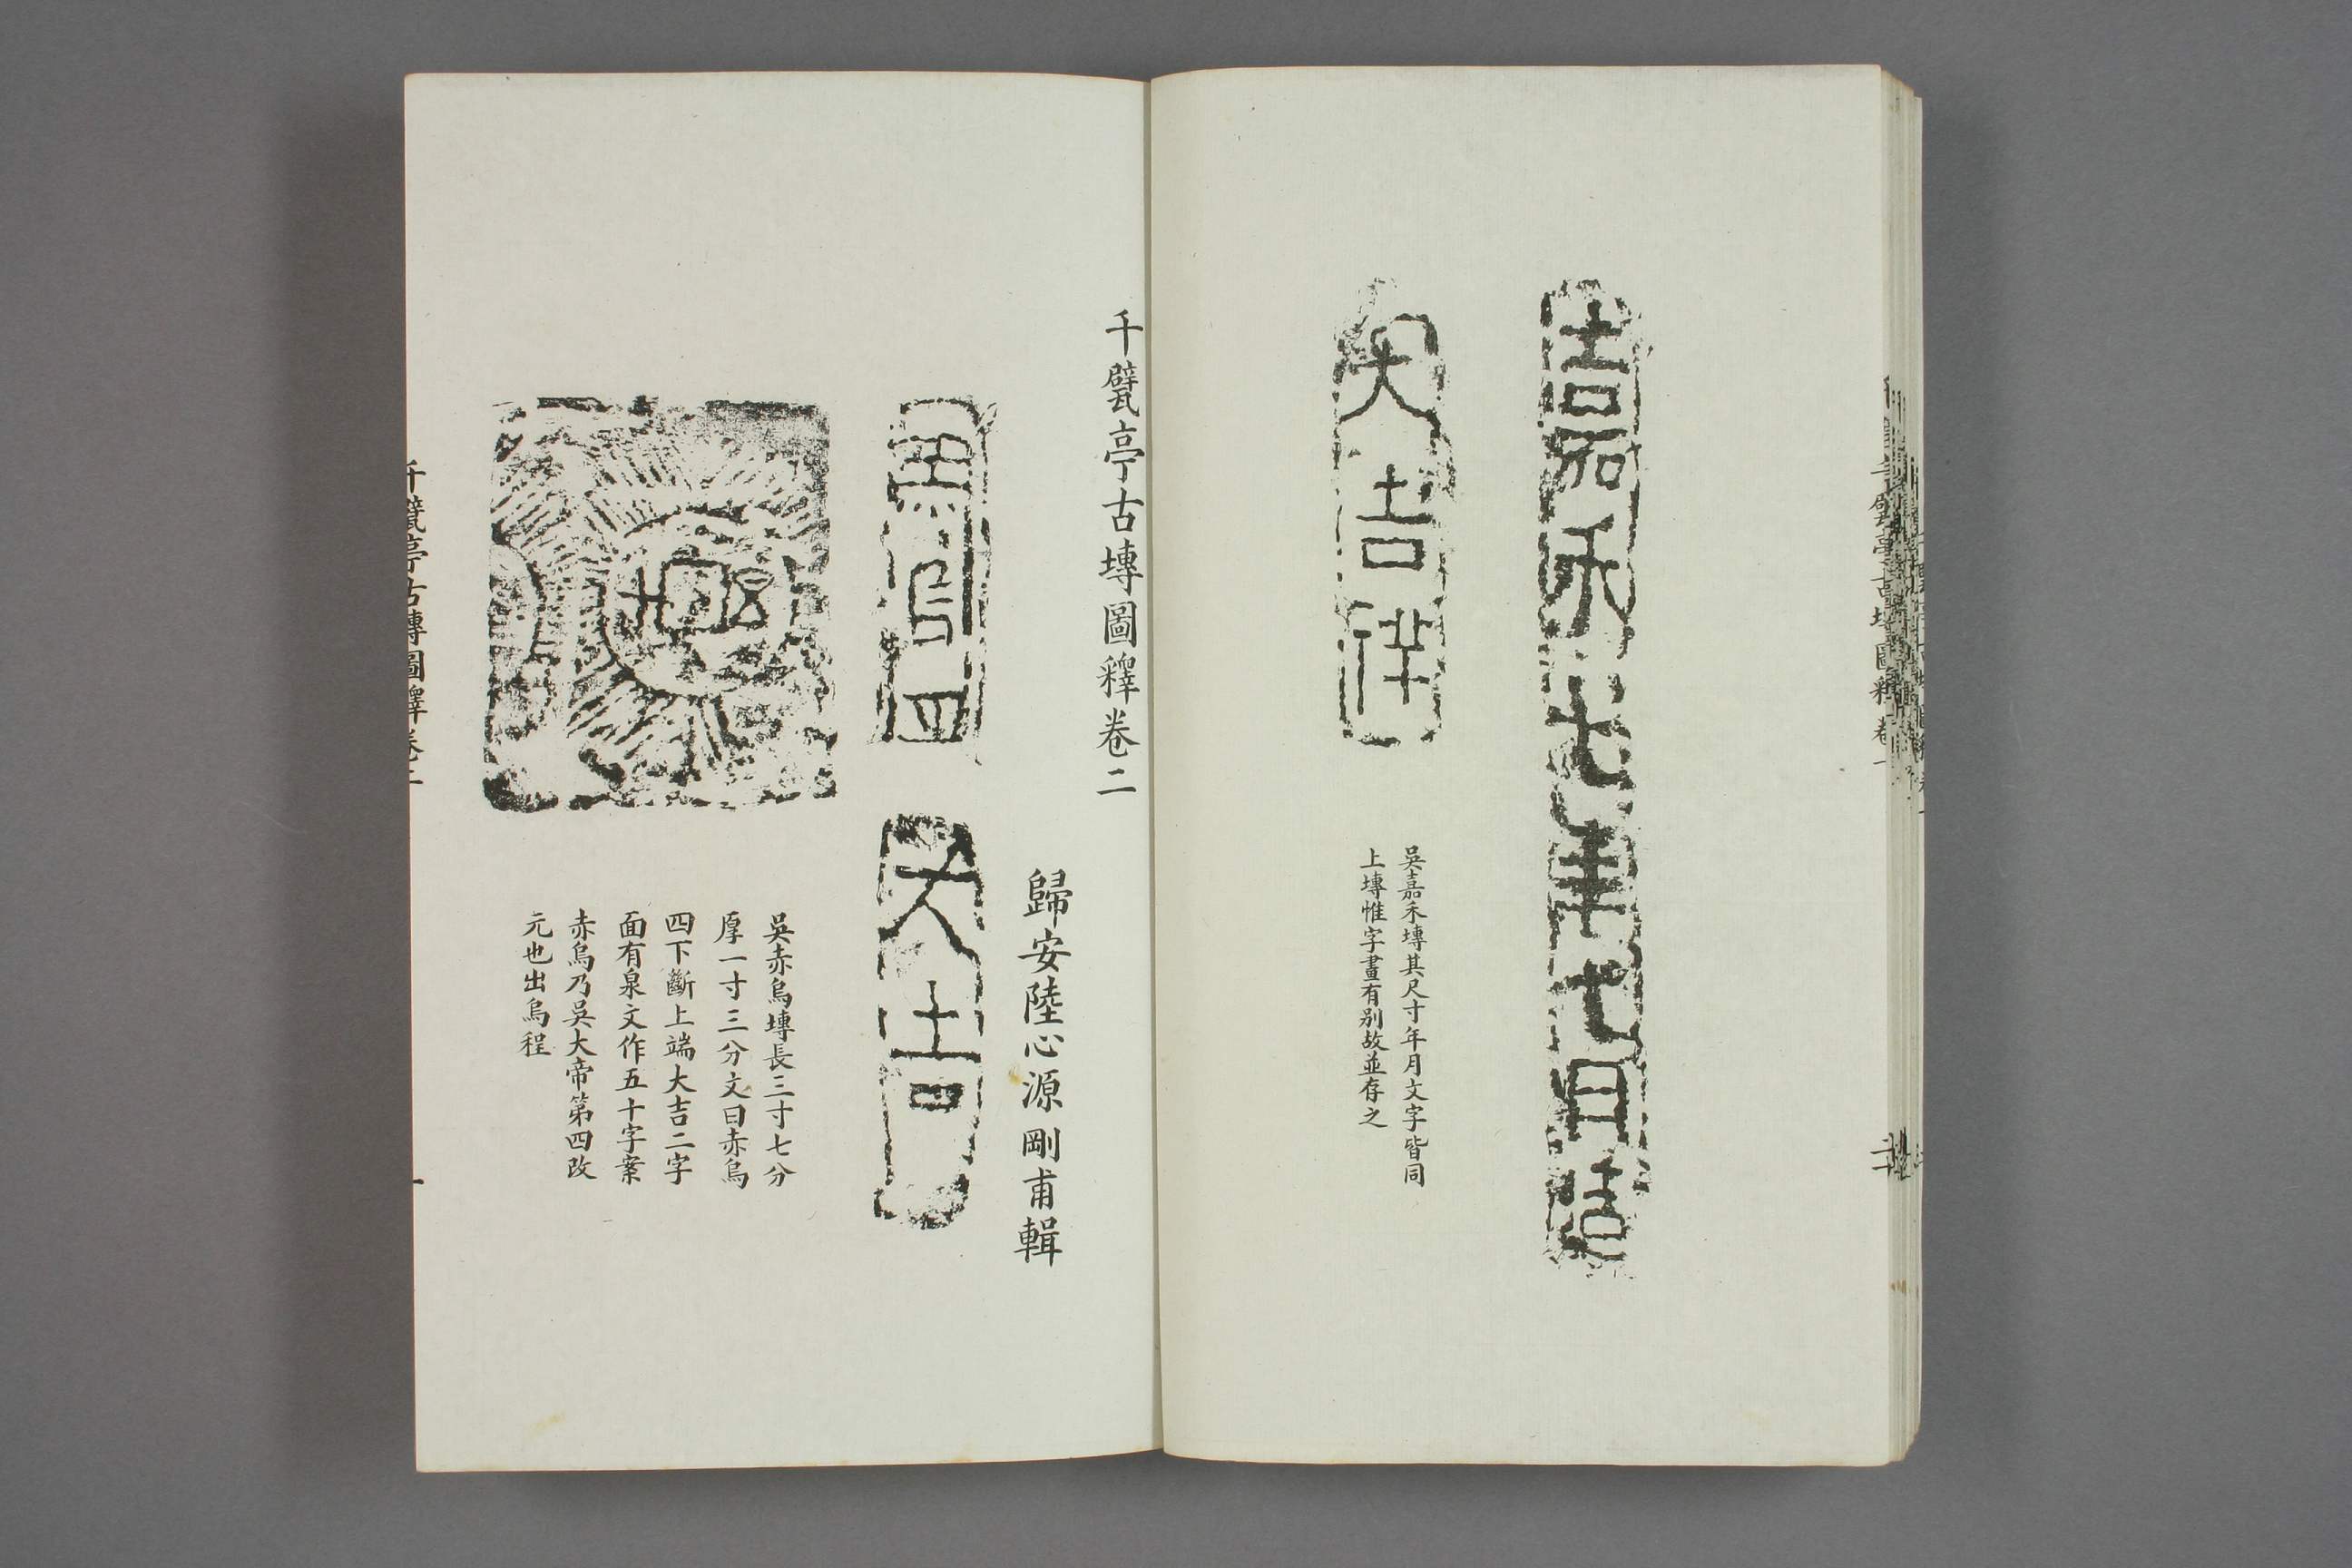 嘉禾七年七月造
大吉祥
吳嘉禾塼其尺寸年月文字皆同
上塼惟字畫有别故並存之
千甓亭古塼圖釋卷二
歸安陸心源剛甫輯
赤烏四
大吉
吳赤烏塼長三寸七分
厚一寸三分文曰赤烏
四下斷上端大吉二字
面有泉文作五十字案
赤烏乃吳大帝第四改
元也出烏程
千甓亭古塼圖釋卷二
一